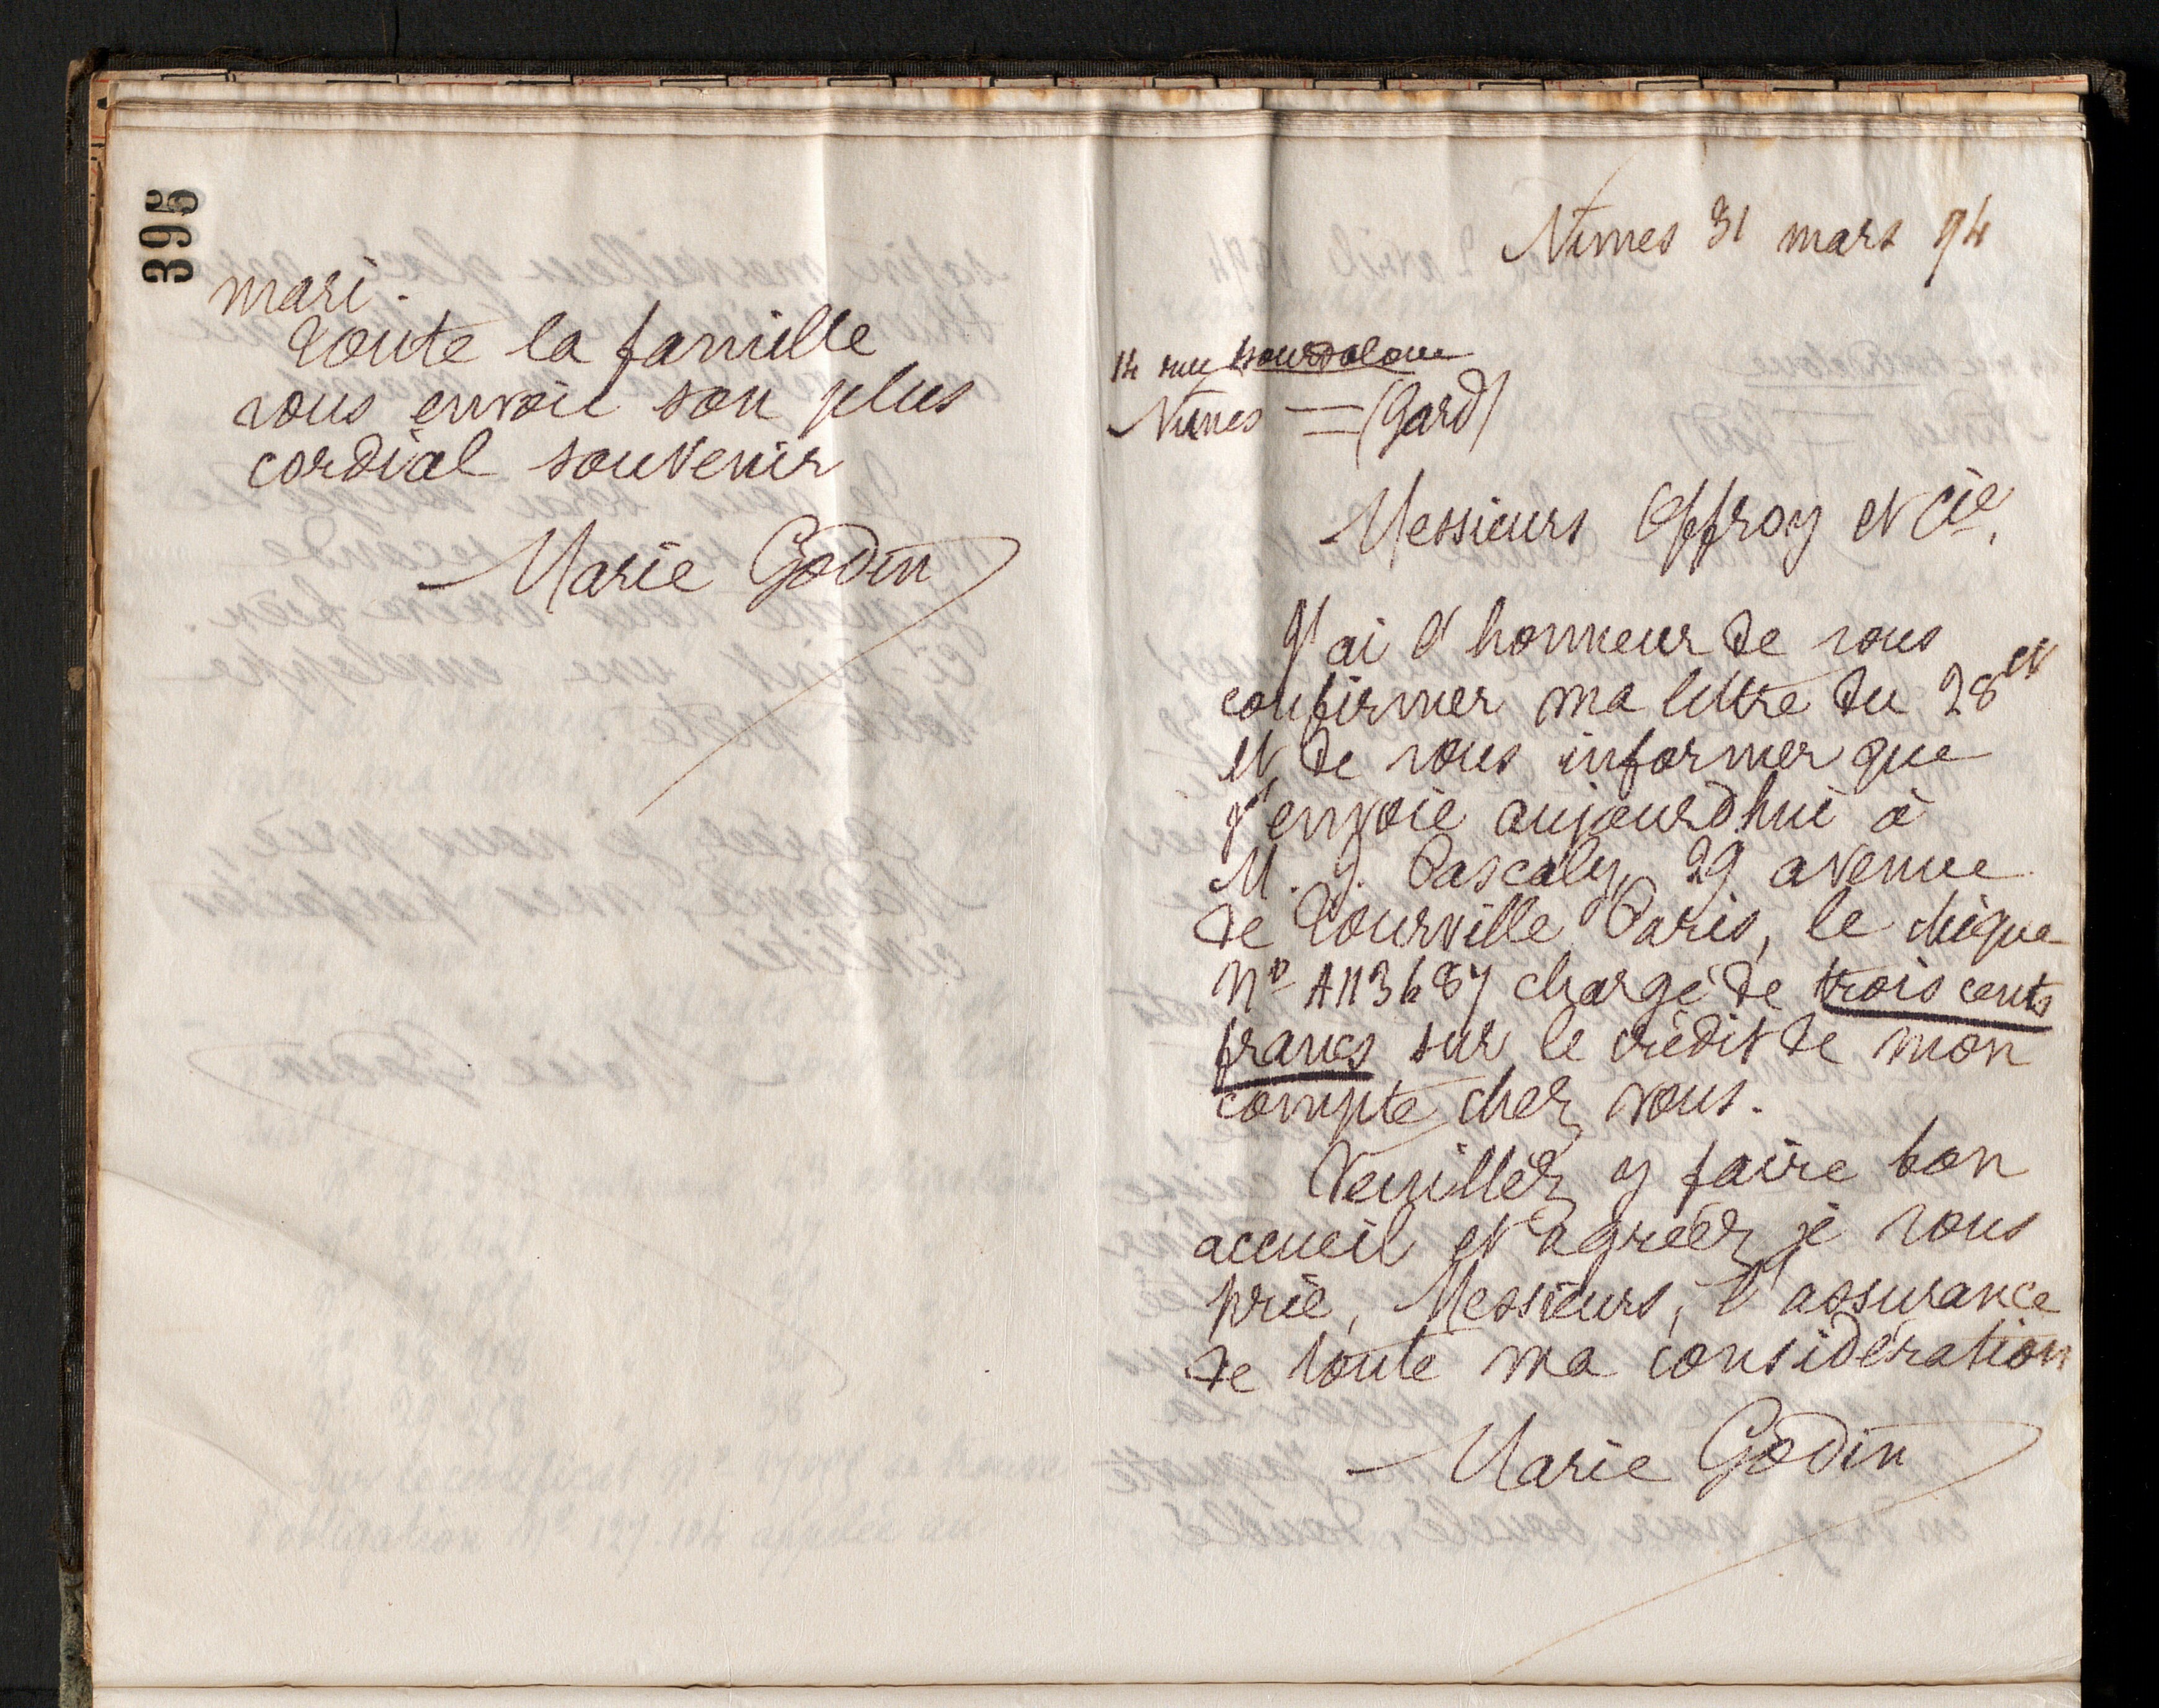 395
mari.
Toute la famille
vous envoie son plus
cordial souvenir
Marie Godin
Nimes 31 mars 94
14 rue Bourdaloue
Nimes = (Gard)
Messieurs Offroy et Cie.
J'ai l'honneur de vous
confirmer ma lettre du 28 et
et de vous informer que
j'envoie aujourd'hui à
M. J. Pascaly, 29 avenue
de Tourville Paris, le chèque
No A113687 chargé de trois cents
francs sur le crédit de mon
compte chez vous.
Veuillez y faire bon
accueil et agréer, je vous
prie, Messieurs, l'assurance
de toute ma considération
Marie Godin